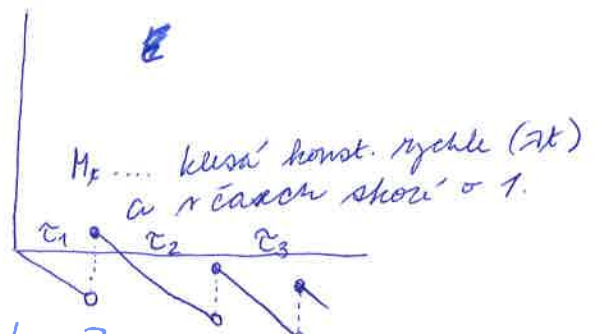 M_t .... klesá konst. rychle (λt)
a v časech skočí o 1.
τ₁ τ₂ τ₃